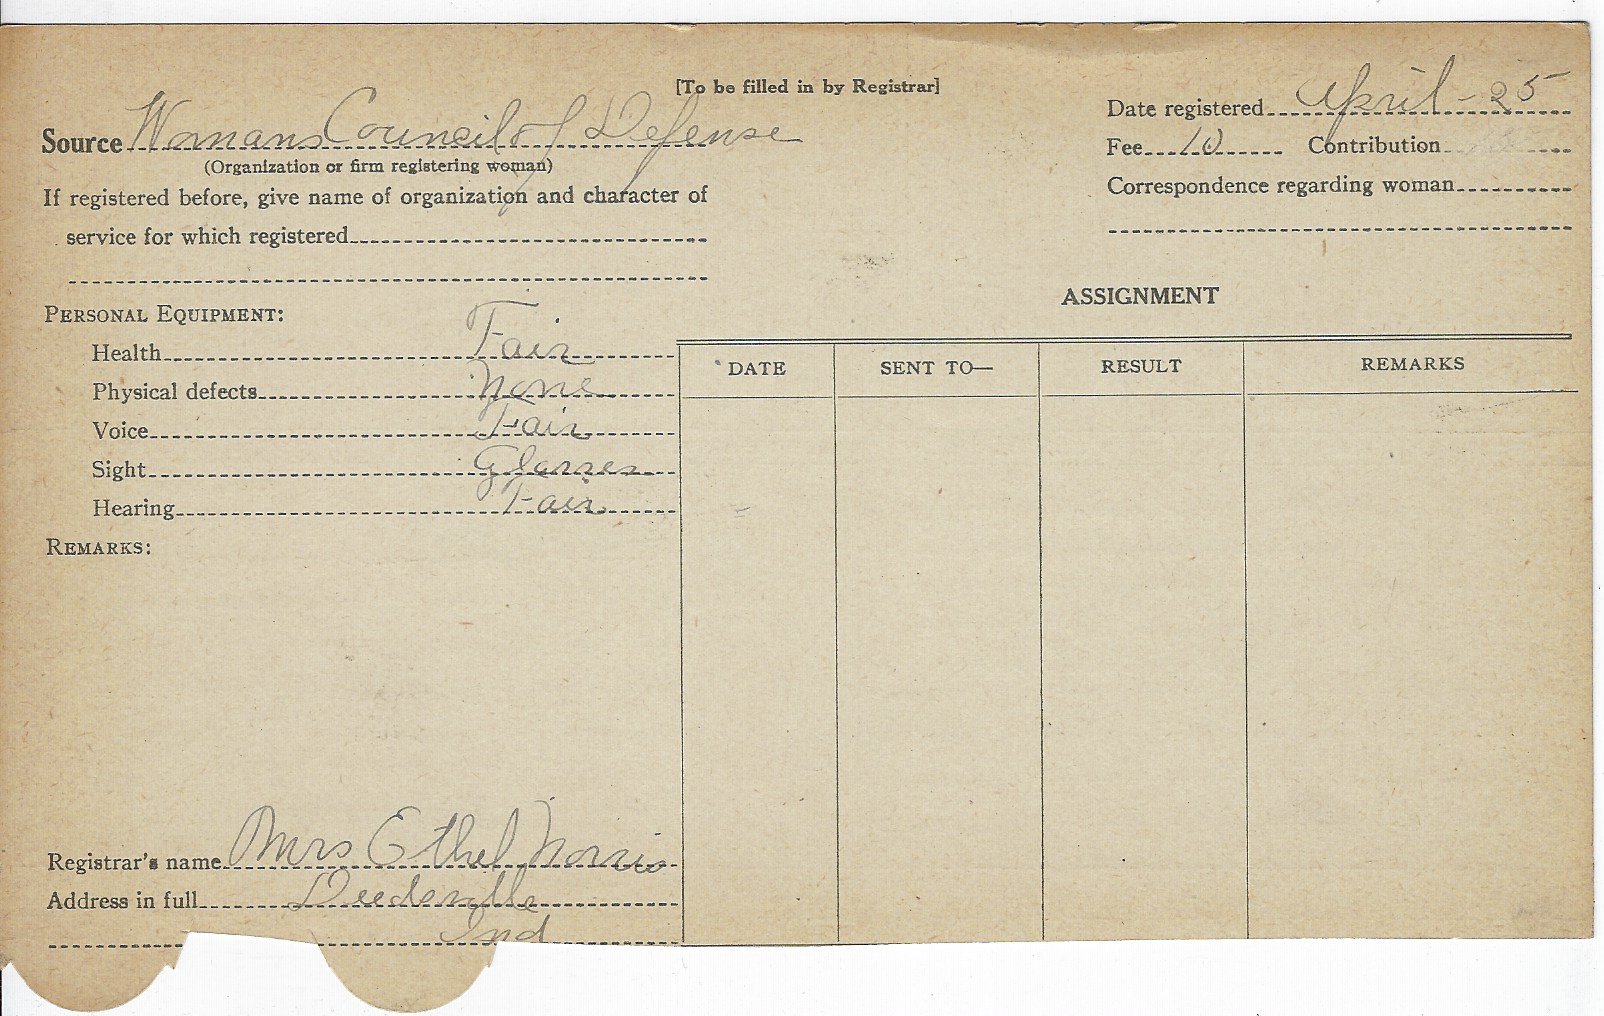 [To be filled in by Registrar]
Source Womans Council of Defense
(Organization or firm registering woman)
If registered before, give name of organization and character of
service for which registered
Date registered April - 25
Fee 10 Contribution
Correspondence regarding woman
PERSONAL EQUIPMENT:
Health Fair
Physical defects None
Voice Fair
Sight Glasses
Hearing Fair
REMARKS:
ASSIGNMENT
DATE SENT TO— RESULT REMARKS
Registrar's name Mrs Ethel Norris
Address in full Deedsville
Ind